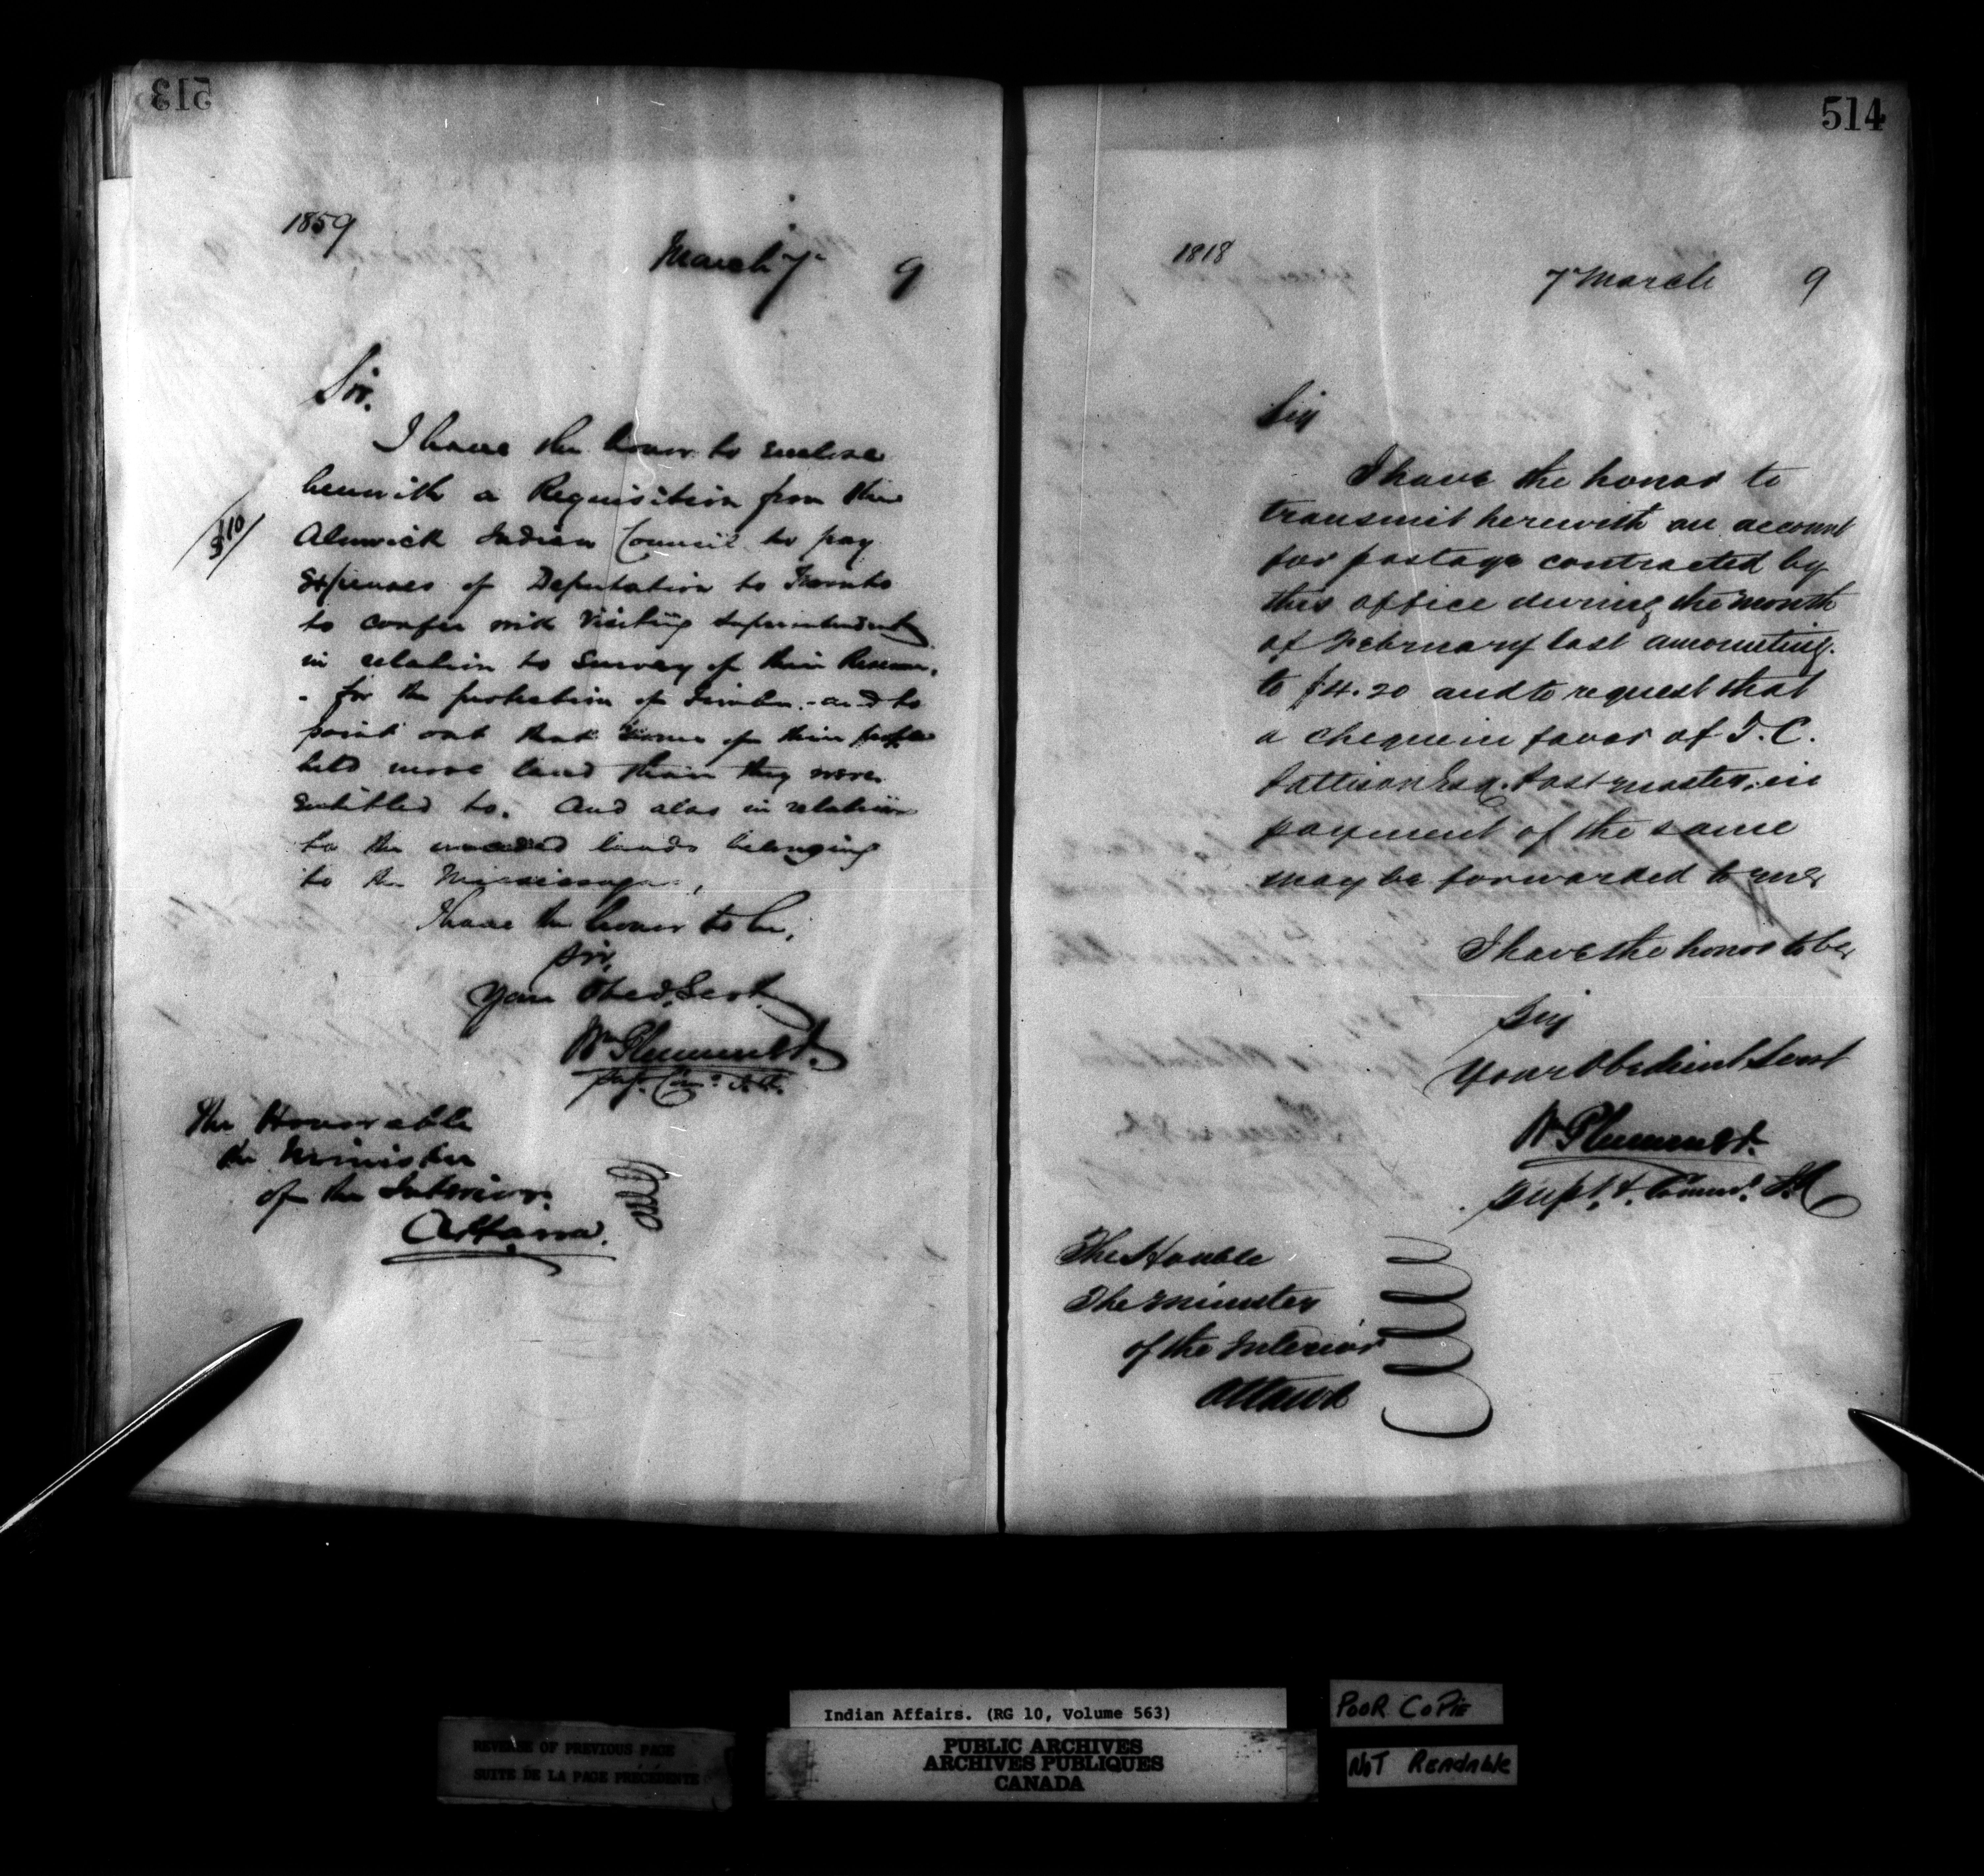 513
1859
March 7th 9
Sir.
I have the honor to enclose
herewith a Requisition from the
Alnwick Indian Council to pay
$110
Expenses of Deputation to Toronto
to confer with Visiting Superintendent
in relation to Survey of their Reserve,
- for the protection of Timber - and to
point out that some of their people
held more land than they were
entitled to. And also in relation
to the unceded lands belonging
to the Mississagas,
I have the honor to be,
Sir,
Your Obed. Servt.
Wm Plummer
The Honorable
the Minister
of the Interior.
Ottawa.
514
1818
7 March 9
Sir
I have the honor to
transmit herewith an account
for postage contracted by
this office during the month
of February last amounting
to $4.20 and to request that
a cheque in favor of T. C.
Pattison Esq. Postmaster, in
payment of the same
may be forwarded to me
I have the honor to be
Sir
Your Obedient Servt
Wm Plummer
Supt. & Commr. I.A
The Honble
The Minister
of the Interior
Ottawa
Indian Affairs. (RG 10, Volume 563)
PUBLIC ARCHIVES
ARCHIVES PUBLIQUES
CANADA
REVERSE OF PREVIOUS PAGE
SUITE DE LA PAGE PRÉCÉDENTE
POOR COPIE
NOT READABLE